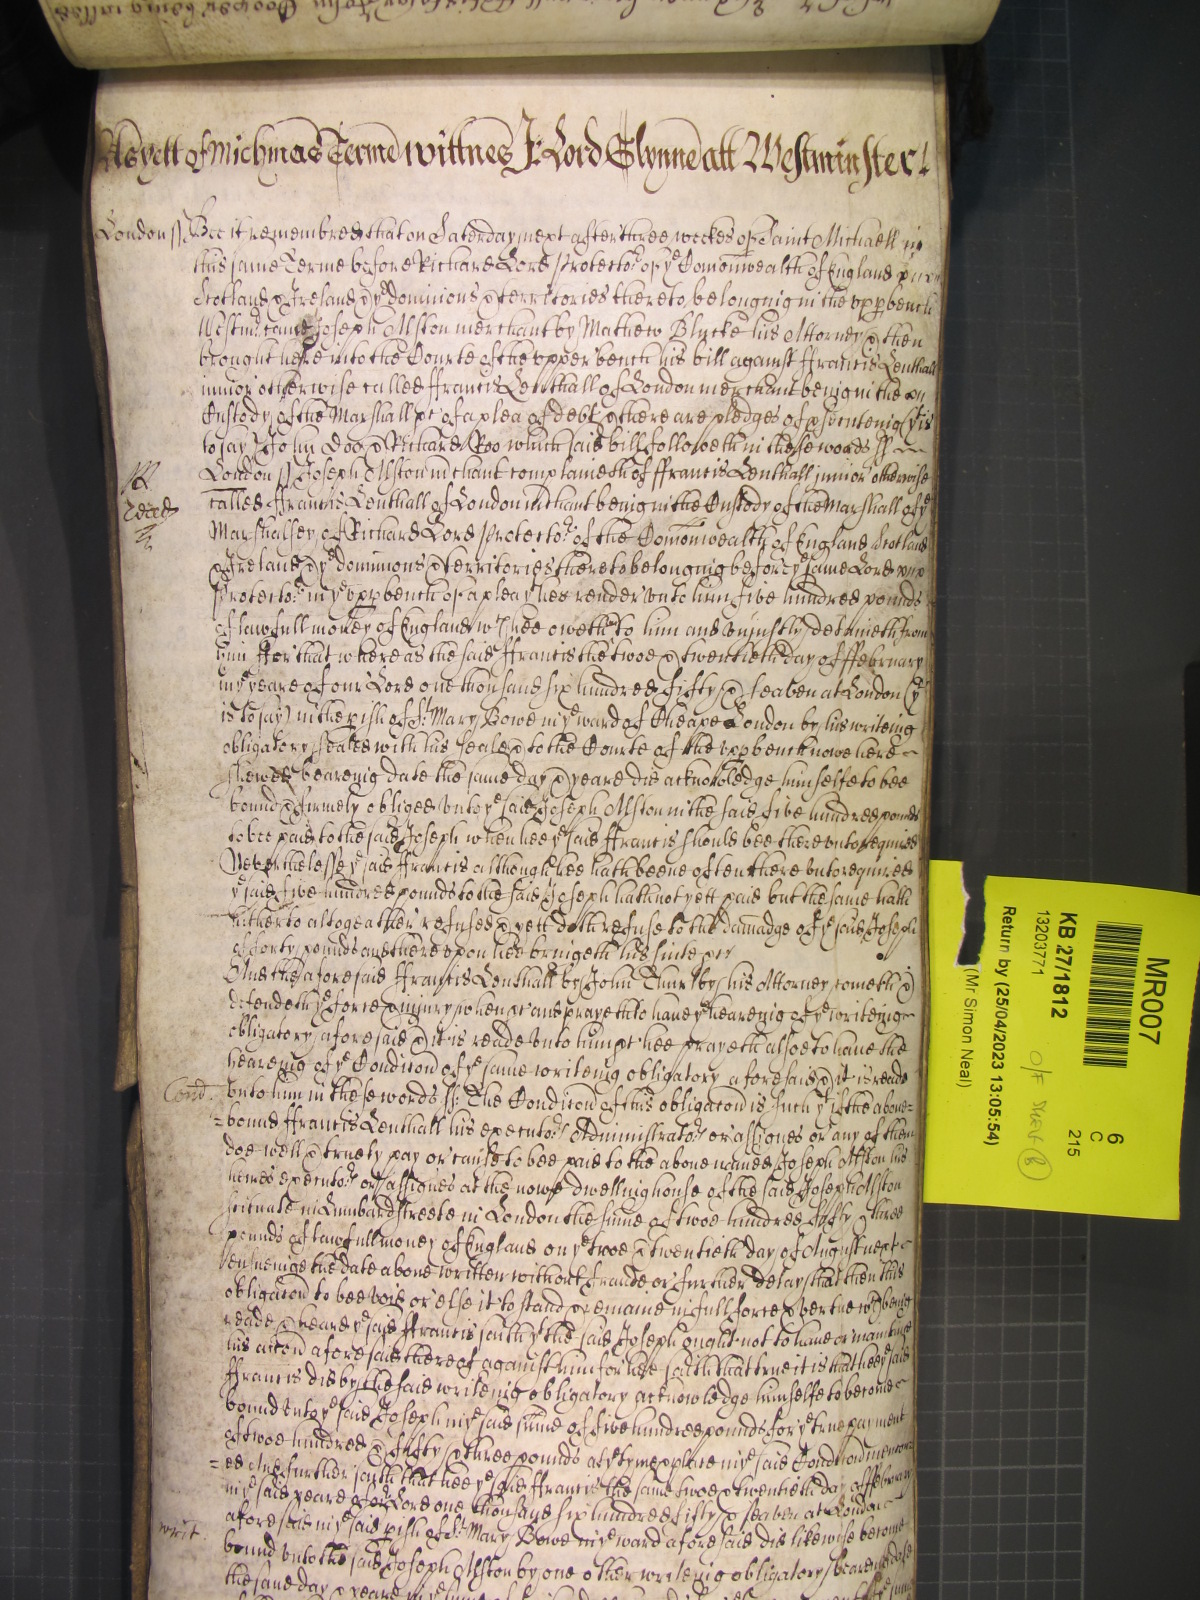 As yett of Michmas Terme wittnes J: Lord Glynne att Westminster
London ss Bee it remembred that on Saturday next after three weekes of Saint Michaell in
this same Terme before Richard Lord Protector of ye Comonwealth of England
Scotland & Ireland & ye dominions & territories thereto belonging in the upp bench
Westmr came Joseph Alston merchant by Mathew Blucke his Attorney & then
brought heere into the Courte of the upper bench his bill against ffrancis Lenthall
iunior otherwise called ffrancis Lenthall of London merchant being in the
Custody of the Marshall &c of a plea of debt & there are pledges of psecuteing (yt is
to say) John Doo & Richard Roo which said bill followeth in these words ss
London ss Joseph Alston mchant complaineth of ffrancis Lenthall junior otherwise
called ffrancis Lenthall of London mchant being in the Custody of the Marshall of ye
Marshalsey of Richard Lord Protector of the Comonwealth of England Scotland
& Ireland & ye dominions & territories thereto belonging before ye same Lord
Protector in ye upp bench of a plea yt hee render unto him five hundred pounds
of lawfull money of England wch hee oweth to him and uniustly detaineth from
him ffor that whereas the said ffrancis the twoe & twentieth day of ffebruary
in ye yeare of our Lord one thousand six hundred fifty & seaven at London (yt
is to say) in the pish of St Mary Bowe in ye ward of Cheape London by his writeing
obligatory sealed with his seale & to the Courte of the upp bench nowe here
shewed beareing date the same day & yeare did acknowledge himselfe to bee
bound & firmely obliged unto ye said Joseph Alston in the said five hundred pounds
to bee paid to the said Joseph when hee ye said ffrancis should bee thereunto required
Neverthelesse ye said ffrancis although hee hath beene often thereunto required
ye said five hundred pounds to the said Joseph hath not yett paid but the same hath
hitherto altogeather refused & yett doth refuse to the damadge of ye said Joseph
of forty pounds and thereupon hee bringeth his suite &c
And the aforesaid ffrancis Lenthall by John Thurlby his Attorney cometh &
defendeth ye force & iniury when &c and prayeth to have ye heareing of ye writeing
obligatory aforesaid & it is reade unto him &c hee prayeth alsoe to have the
heareing of ye Condicon of ye same writeing obligatory aforesaid & it is reade
Cond. unto him in these words ss: The Condicon of this obligacon is such yt if the above
bound ffrancis Lenthall his executors Administrators or assignes or any of them
doe well & truely pay or cause to bee paid to the above named Joseph Alston his
heires executors or assignes at the nowe dwelling house of the said Joseph Alston
scituate in Lumbard streete in London the sume of twoe hundred fifty & three
pounds of lawfull money of England on ye twoe & twentieth day of August next
ensueinge the date above written without fraude or further delay that then this
obligacon to bee void or else it to stand & remaine in full force & vertue wch being
reade & heard ye said ffrancis saith yt the said Joseph ought not to have or maintaine
his accon aforesaid thereof against him for hee saith that true it is that hee ye said
ffrancis did by the said writeing obligatory acknowledge himselfe to become
bound unto ye said Joseph in ye said sume of five hundred pounds for ye true payment
of twoe hundred & fifty & three pounds at ye tyme & place in ye said Condicon mencon
ed And further saith that hee ye said ffrancis the same twoe & twentieth day of ffebruary
in ye said yeare of our Lord one thousand six hundred fifty & seaven at London
aforesaid in ye said pish of St Mary Bowe in ye ward aforesaid did likewise become
writ. bound unto the said Joseph Alston by one other writeing obligatory beareing date
the same day & yeare
MR007
6
C
215
KB 27/1812
13203771
O/F SHELF 8
Return by (25/04/2023 13:05:54)
(Mr Simon Neal)